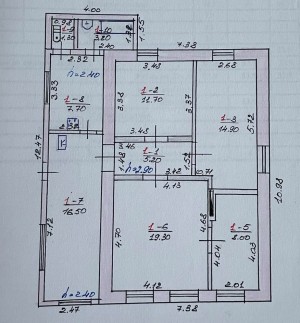 4.00
0.98
1-9
1.30
1-10
3.20
2.40
1.55
7.38
2.32
h=2.40
3.43
2.68
3.33
1-8
7.70
3.38
1-2
11.70
3.37
1-3
14.90
5.72
3.43
12.47
3.46
1-1
h=2.90
1.52
3.42
0.71
4.13
10.98
1-7
16.50
7.12
4.70
1-6
19.30
4.68
1-5
8.00
4.04
4.03
h=2.40
4.12
2.01
2.47
7.38